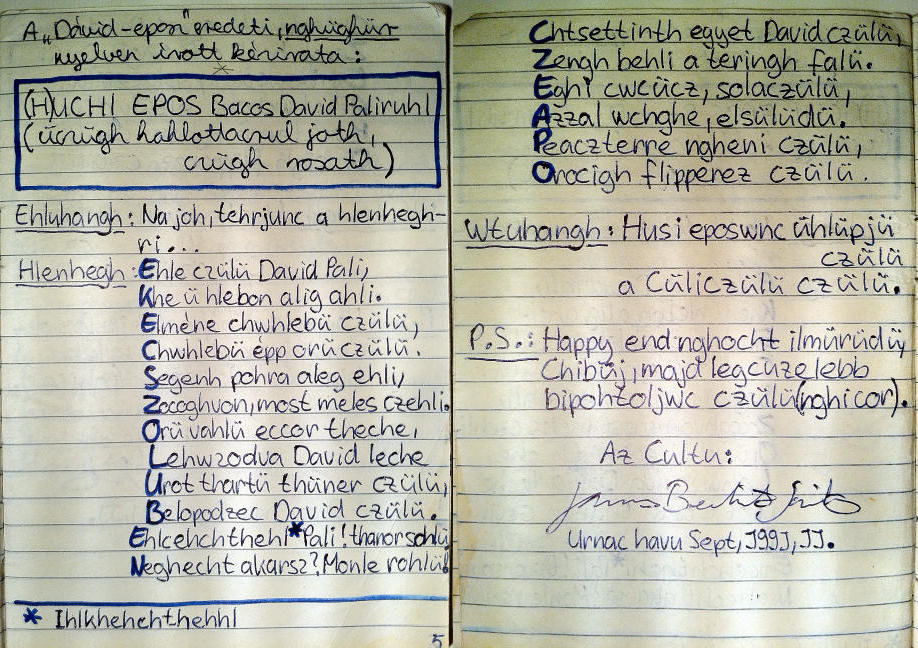 A „Dávid-epos” eredeti, nghüghür
nyelven írott kézirata:
(H)UCHI EPOS Bacos David Paliruhl
(ücrügh hahlotlacrul joth,
crügh rosath)
Ehluhangh: Na joh, tehrjunc a hlenhegh-
ri...
Hlenhegh: Ehle czülü David Pali,
Khe ü hlebon alig ahli.
Elméne chwhlebü czülü,
Chwhlebü épp orü czülü.
Segenh pohra aleg ehli,
Zocoghvon, most meles czehli.
Orü vahlü eccor theche,
Lehwzodva David leche
Urot thartü thüner czülü,
Belopodzec David czülü.
Ehlcehchthehl*Pali! thanorschlü
Neghecht akarsz? Monle rohlü!
* Ihlkhehchthehhl
5
Chtsettinth egyet David czülü,
Zengh behli a teringh falü.
Eghi cwcücz, solaczülü,
Azzal wchghe, elsülüdü.
Peaczterre ngheni czülü,
Orocigh flipperez czülü.
Wtuhangh: Husi eposwnc ühlüpjü
czülü
a Cüliczülü czülü.
P.S.: Happy end nghocht ilmürüdü,
Chibüj, majd legcuzelebb
bipohtoljwc czülü(nghicor).
Az Cultu:
Urnac havu Sept, 1991, II.